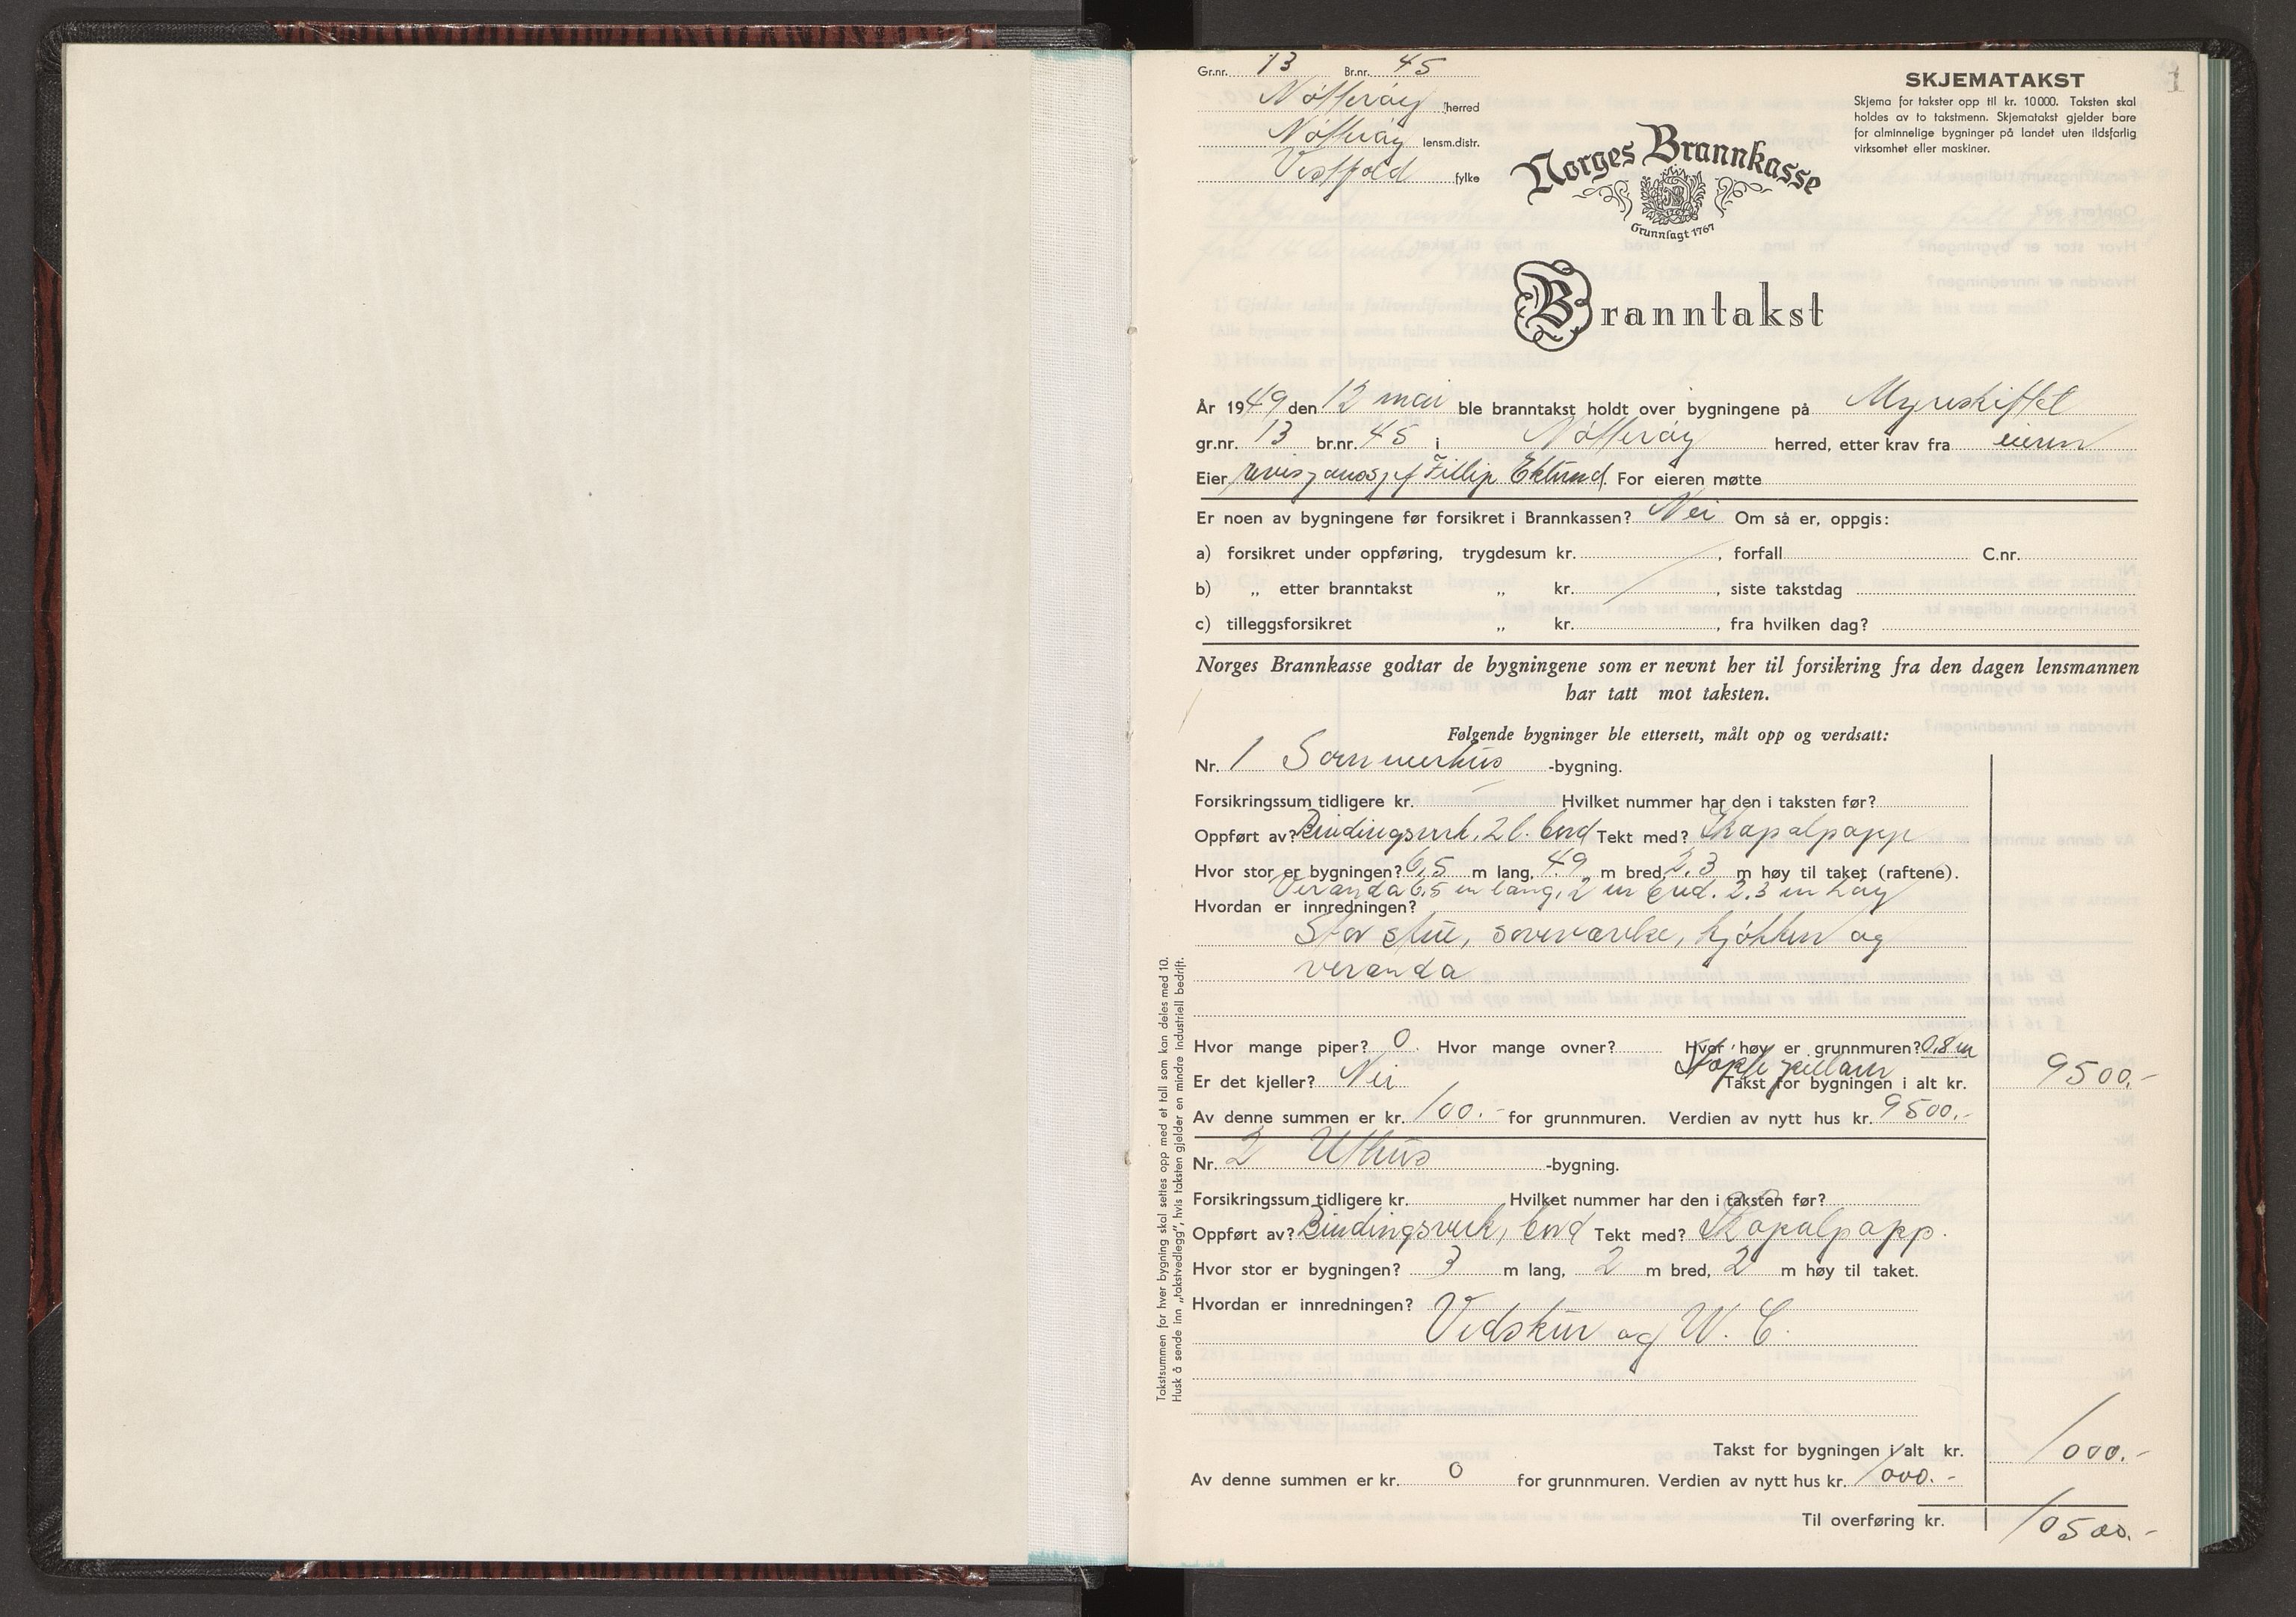 Gr.nr. 13 Br.nr. 45
Nøtterøy herred
Nøtterøy lensm.distr.
Vestfold fylke
SKJEMATAKST
Skjema for takster opp til kr. 10000. Taksten skal
holdes av to takstmenn. Skjematakst gjelder bare
for alminnelige bygninger på landet uten ildsfarlig
virksomhet eller maskiner.
1
Norges Brannkasse
Grunnlagt 1767
Branntakst
År 1949 den 12 mai ble branntakst holdt over bygningene på Myreskiftet
gr.nr. 13 br.nr. 45 i Nøtterøy herred, etter krav fra eieren
Eier Fillip Eklund. For eieren møtte
Er noen av bygningene før forsikret i Brannkassen? Nei Om så er, oppgis:
a) forsikret under oppføring, trygdesum kr. , forfall C.nr.
b) „ etter branntakst „ kr. , siste takstdag
c) tilleggsforsikret „ kr. , fra hvilken dag?
Norges Brannkasse godtar de bygningene som er nevnt her til forsikring fra den dagen lensmannen
har tatt mot taksten.
Følgende bygninger ble ettersett, målt opp og verdsatt:
Nr. 1 Sommerhus -bygning.
Forsikringssum tidligere kr. Hvilket nummer har den i taksten før?
Oppført av? Bindingsverk, 2 l. bord Tekt med? Kapalpapp
Hvor stor er bygningen? 6,5 m lang, 4.9 m bred 2,3 m høy til taket (raftene).
Veranda 6,5 m lang, 2 m bred. 2.3 m høy
Hvordan er innredningen?
Stor stue, soveværelse, kjøkken og
veranda
Hvor mange piper? 0. Hvor mange ovner? Hvor høy er grunnmuren? 0,8 m
Støpte pillarer
Er det kjeller? Nei Takst for bygningen i alt kr. 9500.-
Av denne summen er kr. 100.- for grunnmuren. Verdien av nytt hus kr. 9500.-
Nr. 2 Uthus -bygning.
Forsikringssum tidligere kr. Hvilket nummer har den i taksten før?
Oppført av? Bindingsverk, bord Tekt med? Kapalpapp.
Hvor stor er bygningen? 3 m lang, 2 m bred, 2 m høy til taket.
Hvordan er innredningen?
Vedskur og W. C.
Takst for bygningen i alt kr. 1000.-
Av denne summen er kr. 0 for grunnmuren. Verdien av nytt hus kr. 1000.-
Til overføring kr. 10500.-
Takstsummen for hver bygning skal settes opp med et tall som kan deles med 10.
Husk å sende inn „takstvedlegg", hvis taksten gjelder en mindre industriell bedrift.